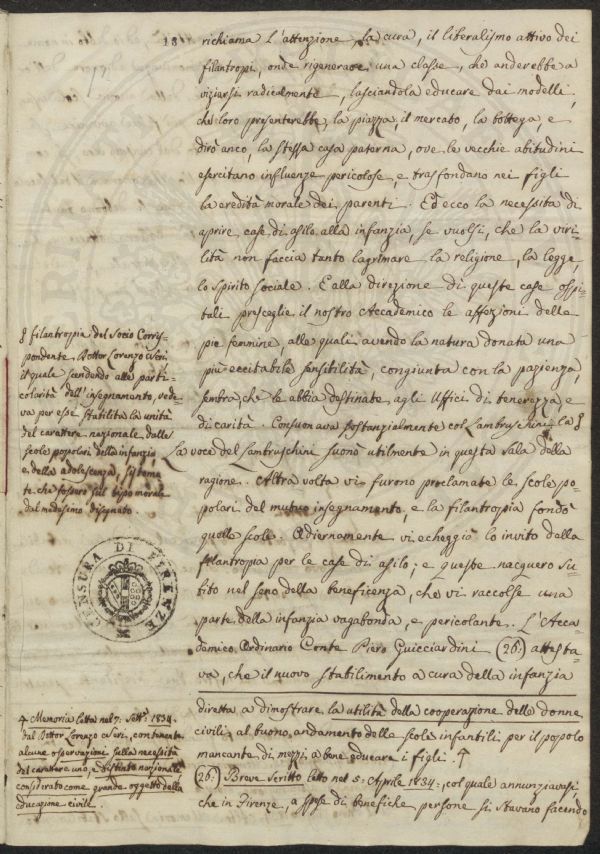 18
richiama l'attenzione, la cura, il liberalismo attivo dei
filantropi, onde rigenerare una classe, che anderebbe a
viziarsi radicalmente, lasciandola educare dai modelli,
che loro presenterebbe, la piazza, il mercato, la bottega, e
dirò anco, la stessa casa paterna, ove le vecchie abitudini
esercitano influenze pericolose, e trasfondano nei figli
la eredità morale dei parenti. Ed ecco la necessità di
aprire case di asilo alla infanzia, se vuolsi, che la viri-
lità non faccia tanto lagrimare la religione, la legge,
lo spirito sociale. E alla direzione di queste case ospi-
tali presceglie il nostro Accademico le affezioni delle
pie femmine, alle quali avendo la natura donata una
più eccitabile sensibilità, congiunta con la pazienza,
sembra, che le abbia destinate agli Uffici di tenerezza e
di carità. Consuonava sostanzialmente col Lambruschini la
la voce del Lambruschini suonò utilmente in questa sala della
ragione. Altra volta vi furono proclamate le scole po-
polari del mutuo insegnamento, e la filantropia fondò
quelle scole. Odiernamente vi echeggiò lo invito della
filantropia per le case di asilo; e queste nacquero su-
bito nel seno della beneficenza, che vi raccolse una
parte della infanzia vagabonda, e pericolante. L'Acca-
demico Ordinario Conte Piero Guicciardini (26.) attesta-
va, che il nuovo stabilimento a cura della infanzia
filantropia del Socio Corris-
pondente Dottor Lorenzo Neri
il quale scendendo alle parti-
colarità dell'insegnamento, vede-
va per esse stabilita la unità
del carattere nazionale dalle
scole popolari della infanzia
e della adolescenza, sistema-
te che fossero sul tipo morale
dal medesimo disegnato.
CENSURA DI FIRENZE
diretta a dimostrare la utilità della cooperazione delle donne
civili al buono andamento delle scole infantili per il popolo
mancante di mezzi, a bene educare i figli.
(26.) Breve scritto letto nel 5. Aprile 1834., col quale annunziavasi,
che in Firenze, a spese di benefiche persone si stavano facendo
Memoria letta nel 7. Sett.e 1834.
dal Dottor Lorenzo Neri, contenente
alcune osservazioni sulla necessità
del carattere uno, e distinto nazionale
considerato come grande oggetto della
educazione civile.